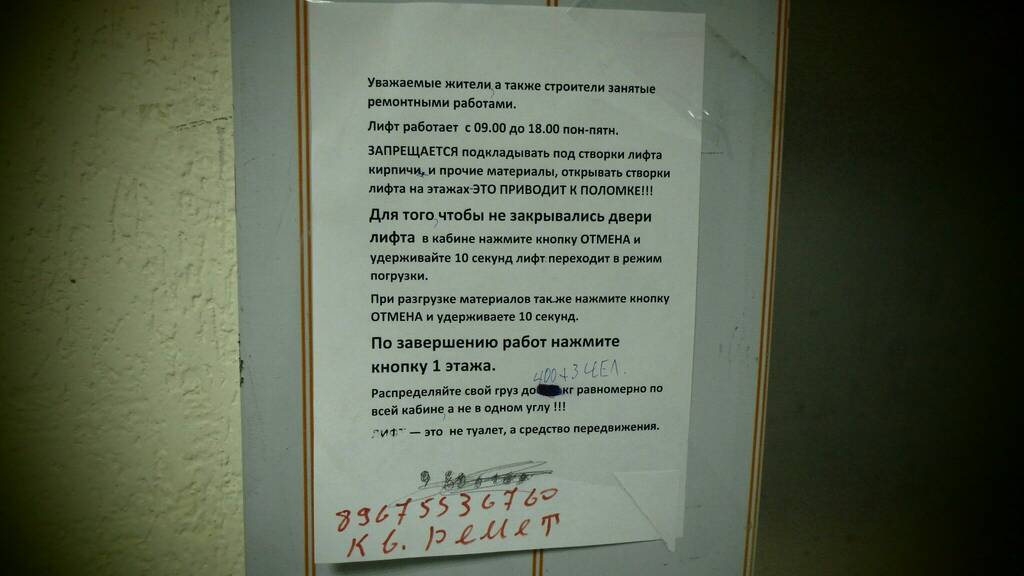 Уважаемые жители, а также строители занятые
ремонтными работами.
Лифт работает с 09.00 до 18.00 пон-пятн.
ЗАПРЕЩАЕТСЯ подкладывать под створки лифта
кирпичи, и прочие материалы, открывать створки
лифта на этажах-ЭТО ПРИВОДИТ К ПОЛОМКЕ!!!
Для того, чтобы не закрывались двери
лифта в кабине нажмите кнопку ОТМЕНА и
удерживайте 10 секунд лифт переходит в режим
погрузки.
При разгрузке материалов так-же нажмите кнопку
ОТМЕНА и удерживаете 10 секунд.
По завершению работ нажмите
кнопку 1 этажа.
400+3 ЧЕЛ.
Распределяйте свой груз до кг равномерно по
всей кабине, а не в одном углу !!!
ЛИФТ — это не туалет, а средство передвижения.
89675536760
К в. Ремет